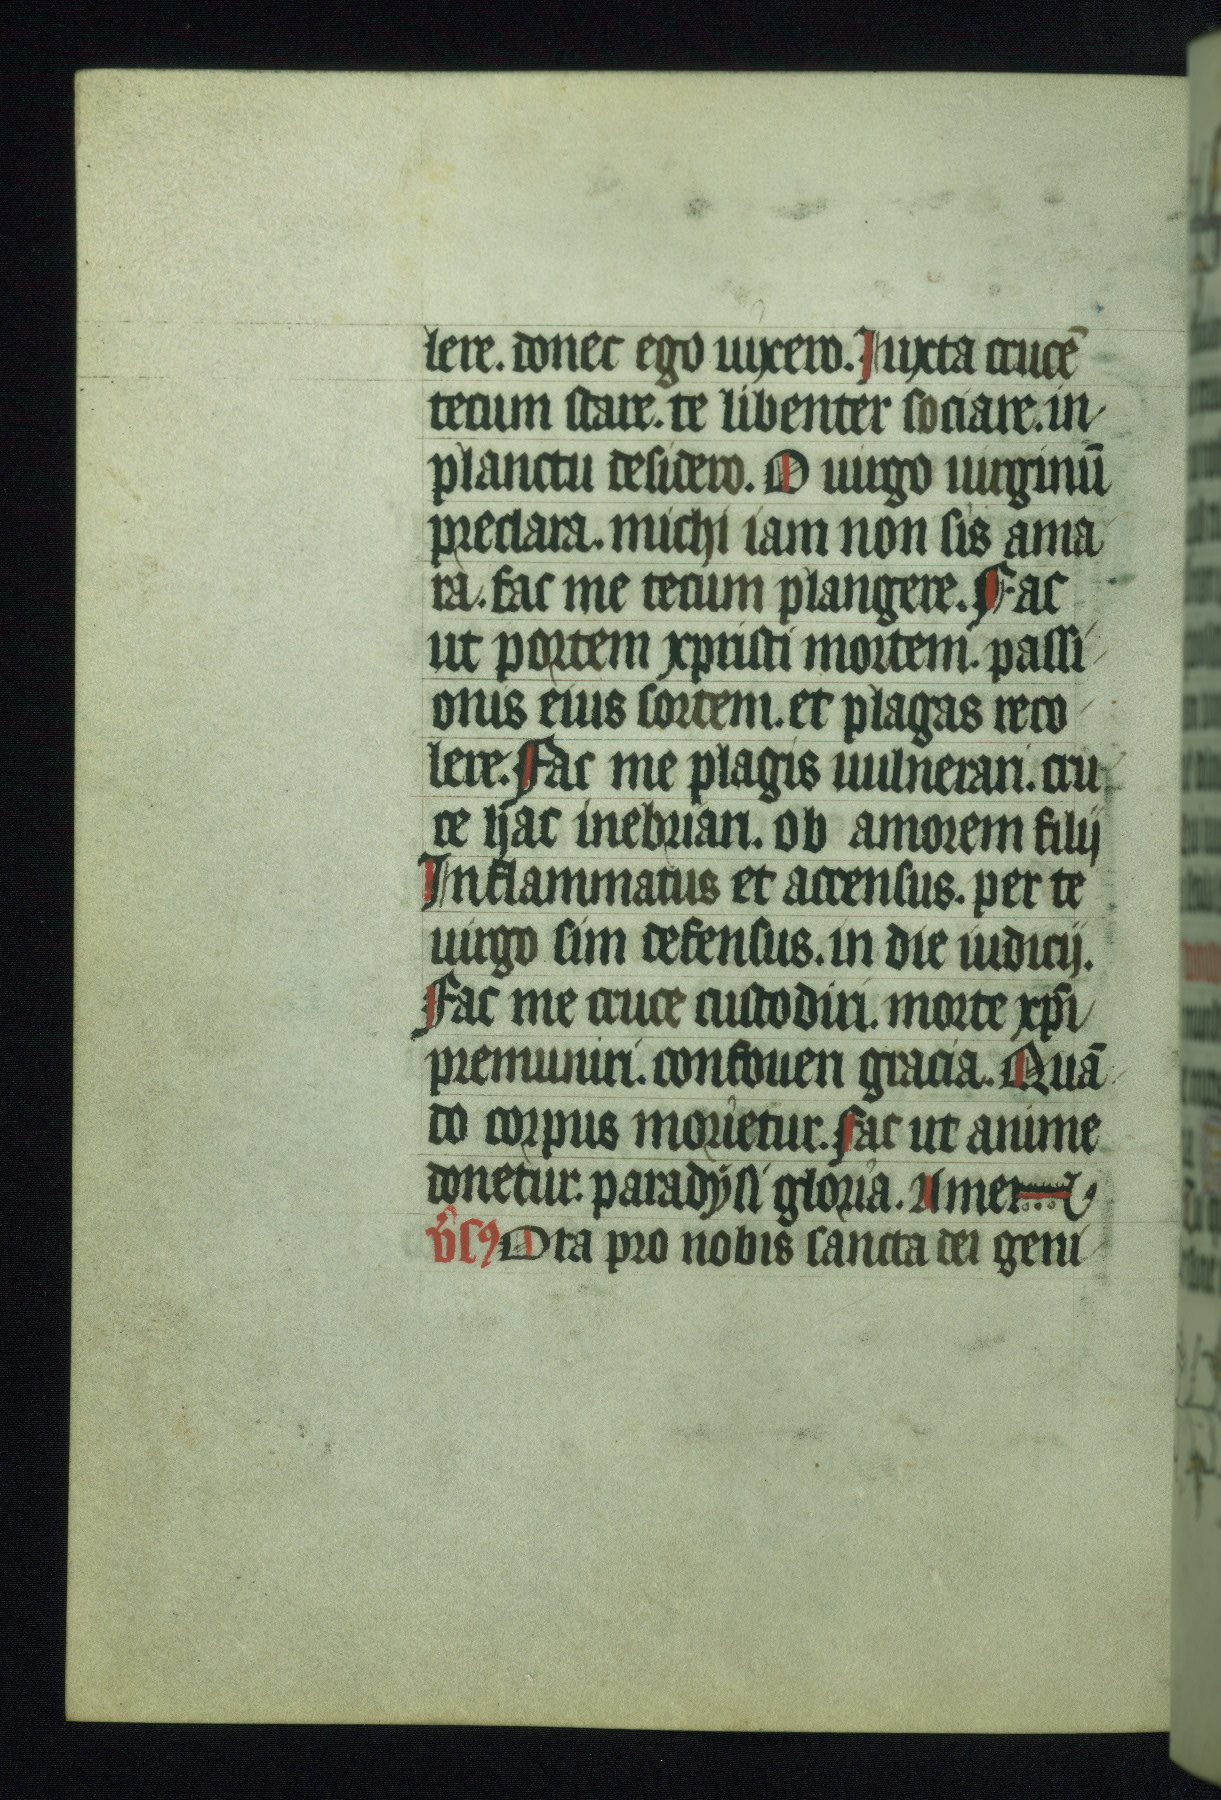 lere. donec ego uixero. Iuxta crucē
tecum stare. te libenter sociare. in
planctu desidero. O uirgo uirginū
preclara. michi iam non sis ama
ra. fac me tecum plangere. Fac
ut portem xpristi mortem. passi
onis eius sortem. et plagas reco
lere. Fac me plagis uulnerari. cru
ce hac inebriari. ob amorem filij
Inflammatus et accensus. per te
uirgo sim defensus. in die iudicij.
Fac me cruce custodiri. morte xpi
premuniri. confoueri gracia. Quā
do corpus morietur. fac ut anime
donetur. paradysi gloria. Amen
Ora pro nobis sancta dei geni